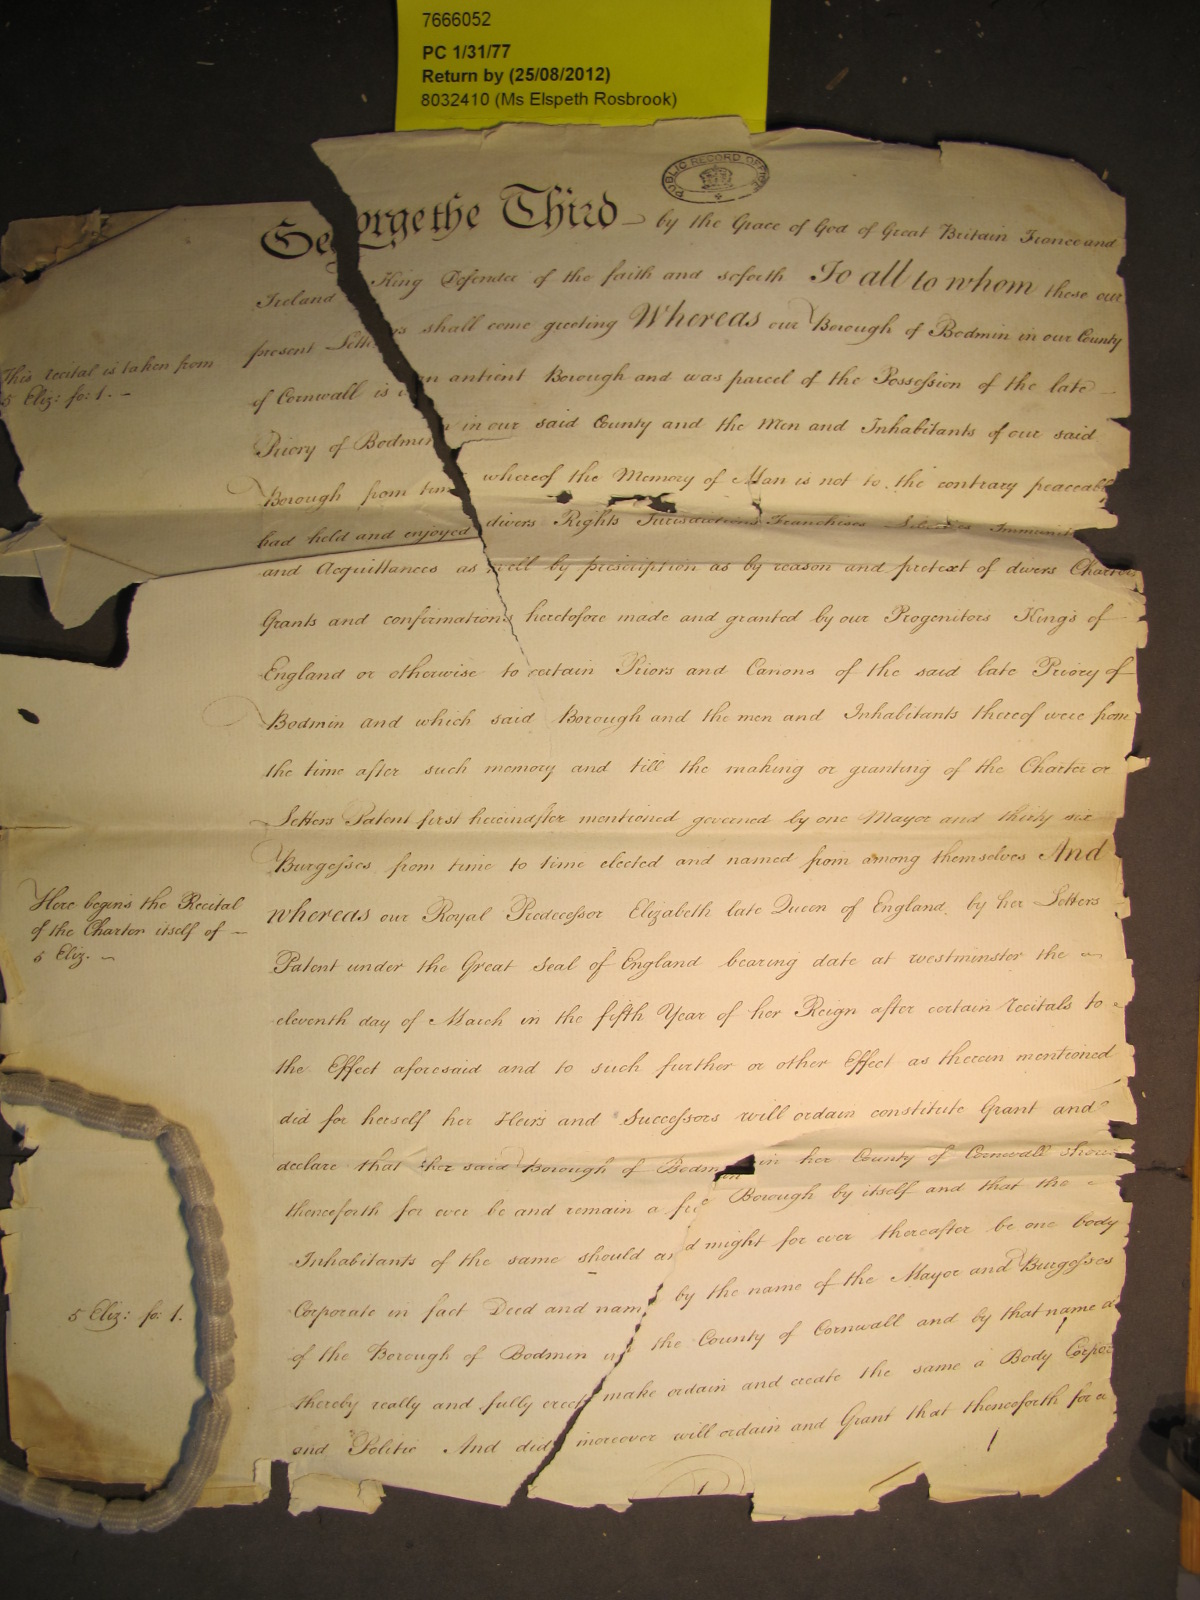 7666052
PC 1/31/77
Return by (25/08/2012)
8032410 (Ms Elspeth Rosbrook)
PUBLIC RECORD OFFICE
George the Third by the Grace of God of Great Britain France and
Ireland King Defender of the faith and soforth To all to whom these our
present Letters shall come greeting Whereas our Borough of Bodmin in our County
of Cornwall is an antient Borough and was parcel of the Possession of the late
This recital is taken from
5 Eliz: fo: 1.
Priory of Bodmin in our said County and the Men and Inhabitants of our said
Borough from time whereof the Memory of Man is not to the contrary peaceably
had held and enjoyed divers Rights Jurisdictions Franchises Immunit
and Acquittances as well by prescription as by reason and pretext of divers Charters
Grants and confirmations heretofore made and granted by our Progenitors Kings of
England or otherwise to certain Priors and Canons of the said late Priory of
Bodmin and which said Borough and the men and Inhabitants thereof were from
the time after such memory and till the making or granting of the Charter or
Letters Patent first hereinafter mentioned governed by one Mayor and thirty six
Burgesses from time to time elected and named from among themselves And
Here begins the Recital
of the Charter itself of
5 Eliz.
whereas our Royal Predecessor Elizabeth late Queen of England by her Letters
Patent under the Great Seal of England bearing date at westminster the
eleventh day of March in the fifth Year of her Reign after certain recitals to
the Effect aforesaid and to such further or other Effect as therein mentioned
did for herself her Heirs and Successors will ordain constitute Grant and
declare that the said Borough of Bodmin in her County of Cornwall shou
thenceforth for ever be and remain a free Borough by itself and that the
Inhabitants of the same should and might for ever thereafter be one body
Corporate in fact Deed and name by the name of the Mayor and Burgesses
5 Eliz: fo: 1.
of the Borough of Bodmin in the County of Cornwall and by that name
thereby really and fully erect make ordain and create the same a Body Corpor
and Politic And did moreover will ordain and Grant that thenceforth for